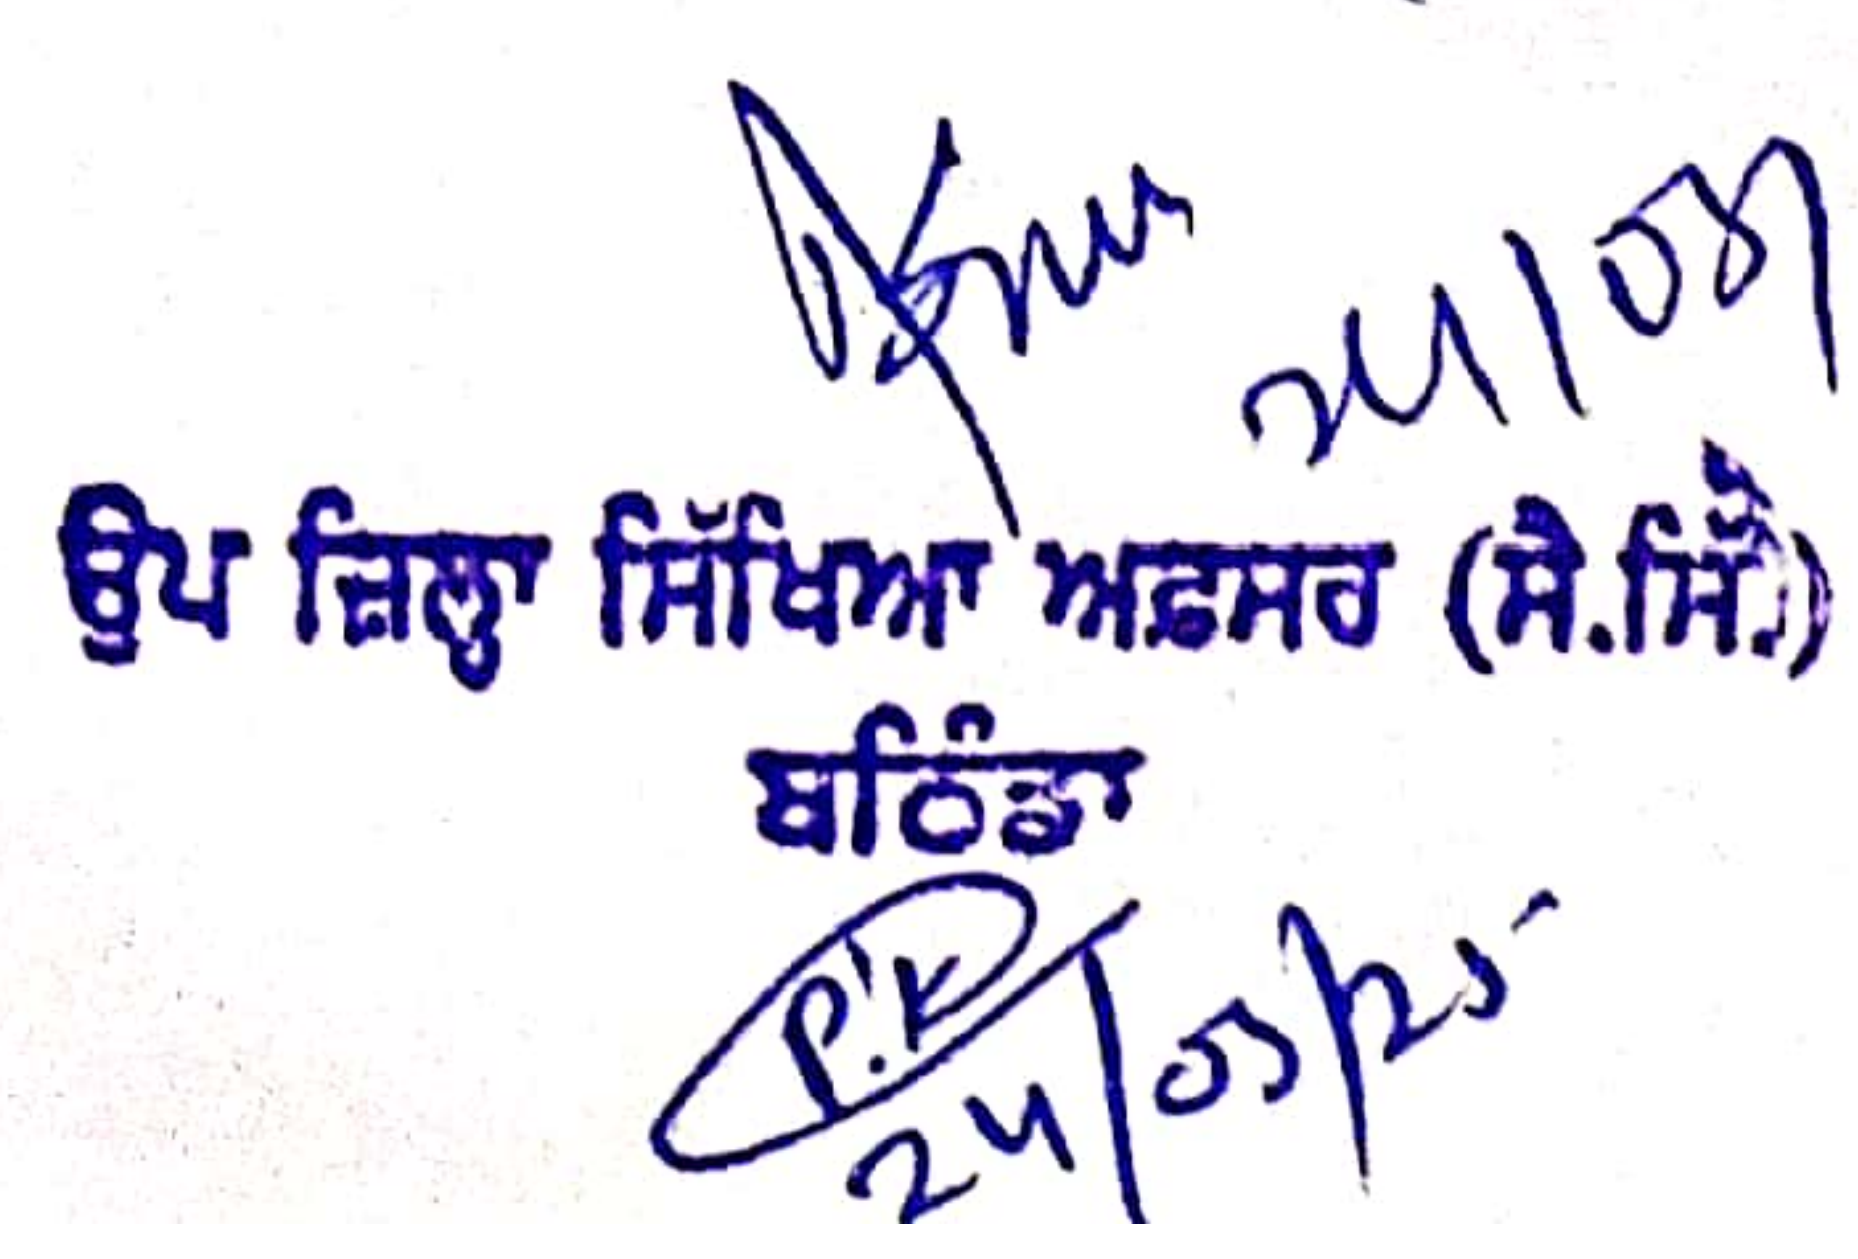 24/08/
ਉਪ ਜ਼ਿਲ੍ਹਾ ਸਿੱਖਿਆ ਅਫ਼ਸਰ (ਸੈ.ਸਿੱ.)
ਬਠਿੰਡਾ
P.K
24/03/25